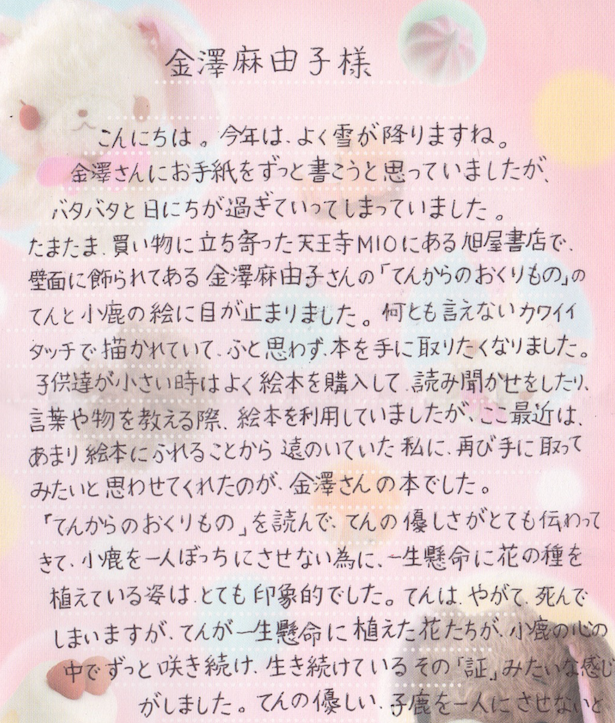 金澤麻由子様
こんにちは。今年は、よく雪が降りますね。
金澤さんにお手紙をずっと書こうと思っていましたが、
バタバタと日にちが過ぎていってしまっていました。
たまたま、買い物に立ち寄った天王寺MIOにある旭屋書店で、
壁面に飾られてある金澤麻由子さんの「てんからのおくりもの」の
てんと小鹿の絵に目が止まりました。何とも言えないカワイイ
タッチで描かれていて、ふと思わず、本を手に取りたくなりました。
子供達が小さい時はよく絵本を購入して、読み聞かせをしたり、
言葉や物を教える際、絵本を利用していましたが、ここ最近は、
あまり絵本にふれることから遠のいていた私に、再び手に取って
みたいと思わせてくれたのが、金澤さんの本でした。
「てんからのおくりもの」を読んで、てんの優しさがとても伝わって
きて、小鹿を一人ぼっちにさせない為に、一生懸命に花の種を
植えている姿は、とても印象的でした。てんは、やがて、死んで
しまいますが、てんが一生懸命に植えた花たちが、小鹿の心の
中でずっと咲き続け、生き続けているその「証」みたいな感じ
がしました。てんの優しい、子鹿を一人にさせないと